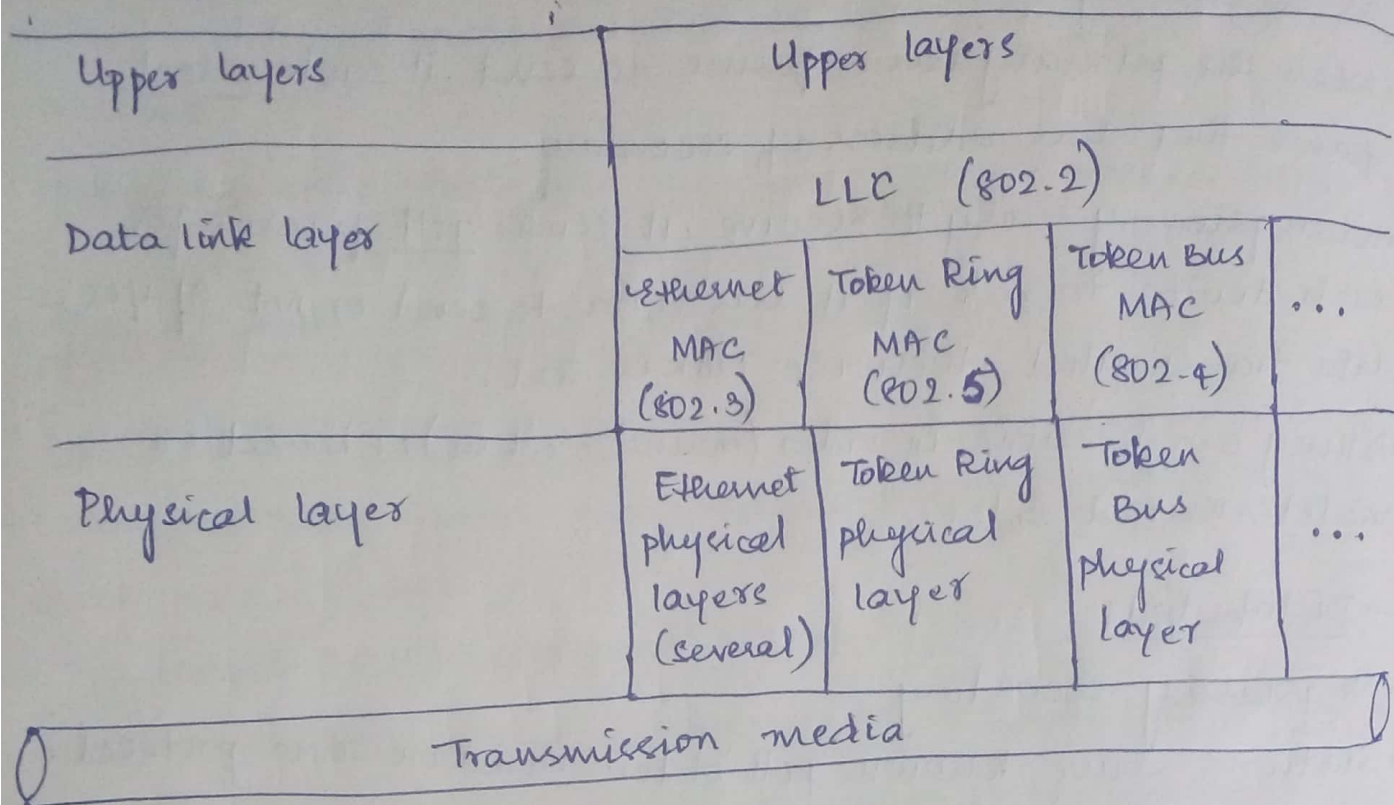 Upper layers
Upper layers
Data link layer
LLC (802.2)
Ethernet
MAC
(802.3)
Token Ring
MAC
(802.5)
Token Bus
MAC
(802.4)
...
Physical layer
Ethernet
physical
layers
(several)
Token Ring
physical
layer
Token
Bus
physical
layer
...
Transmission media